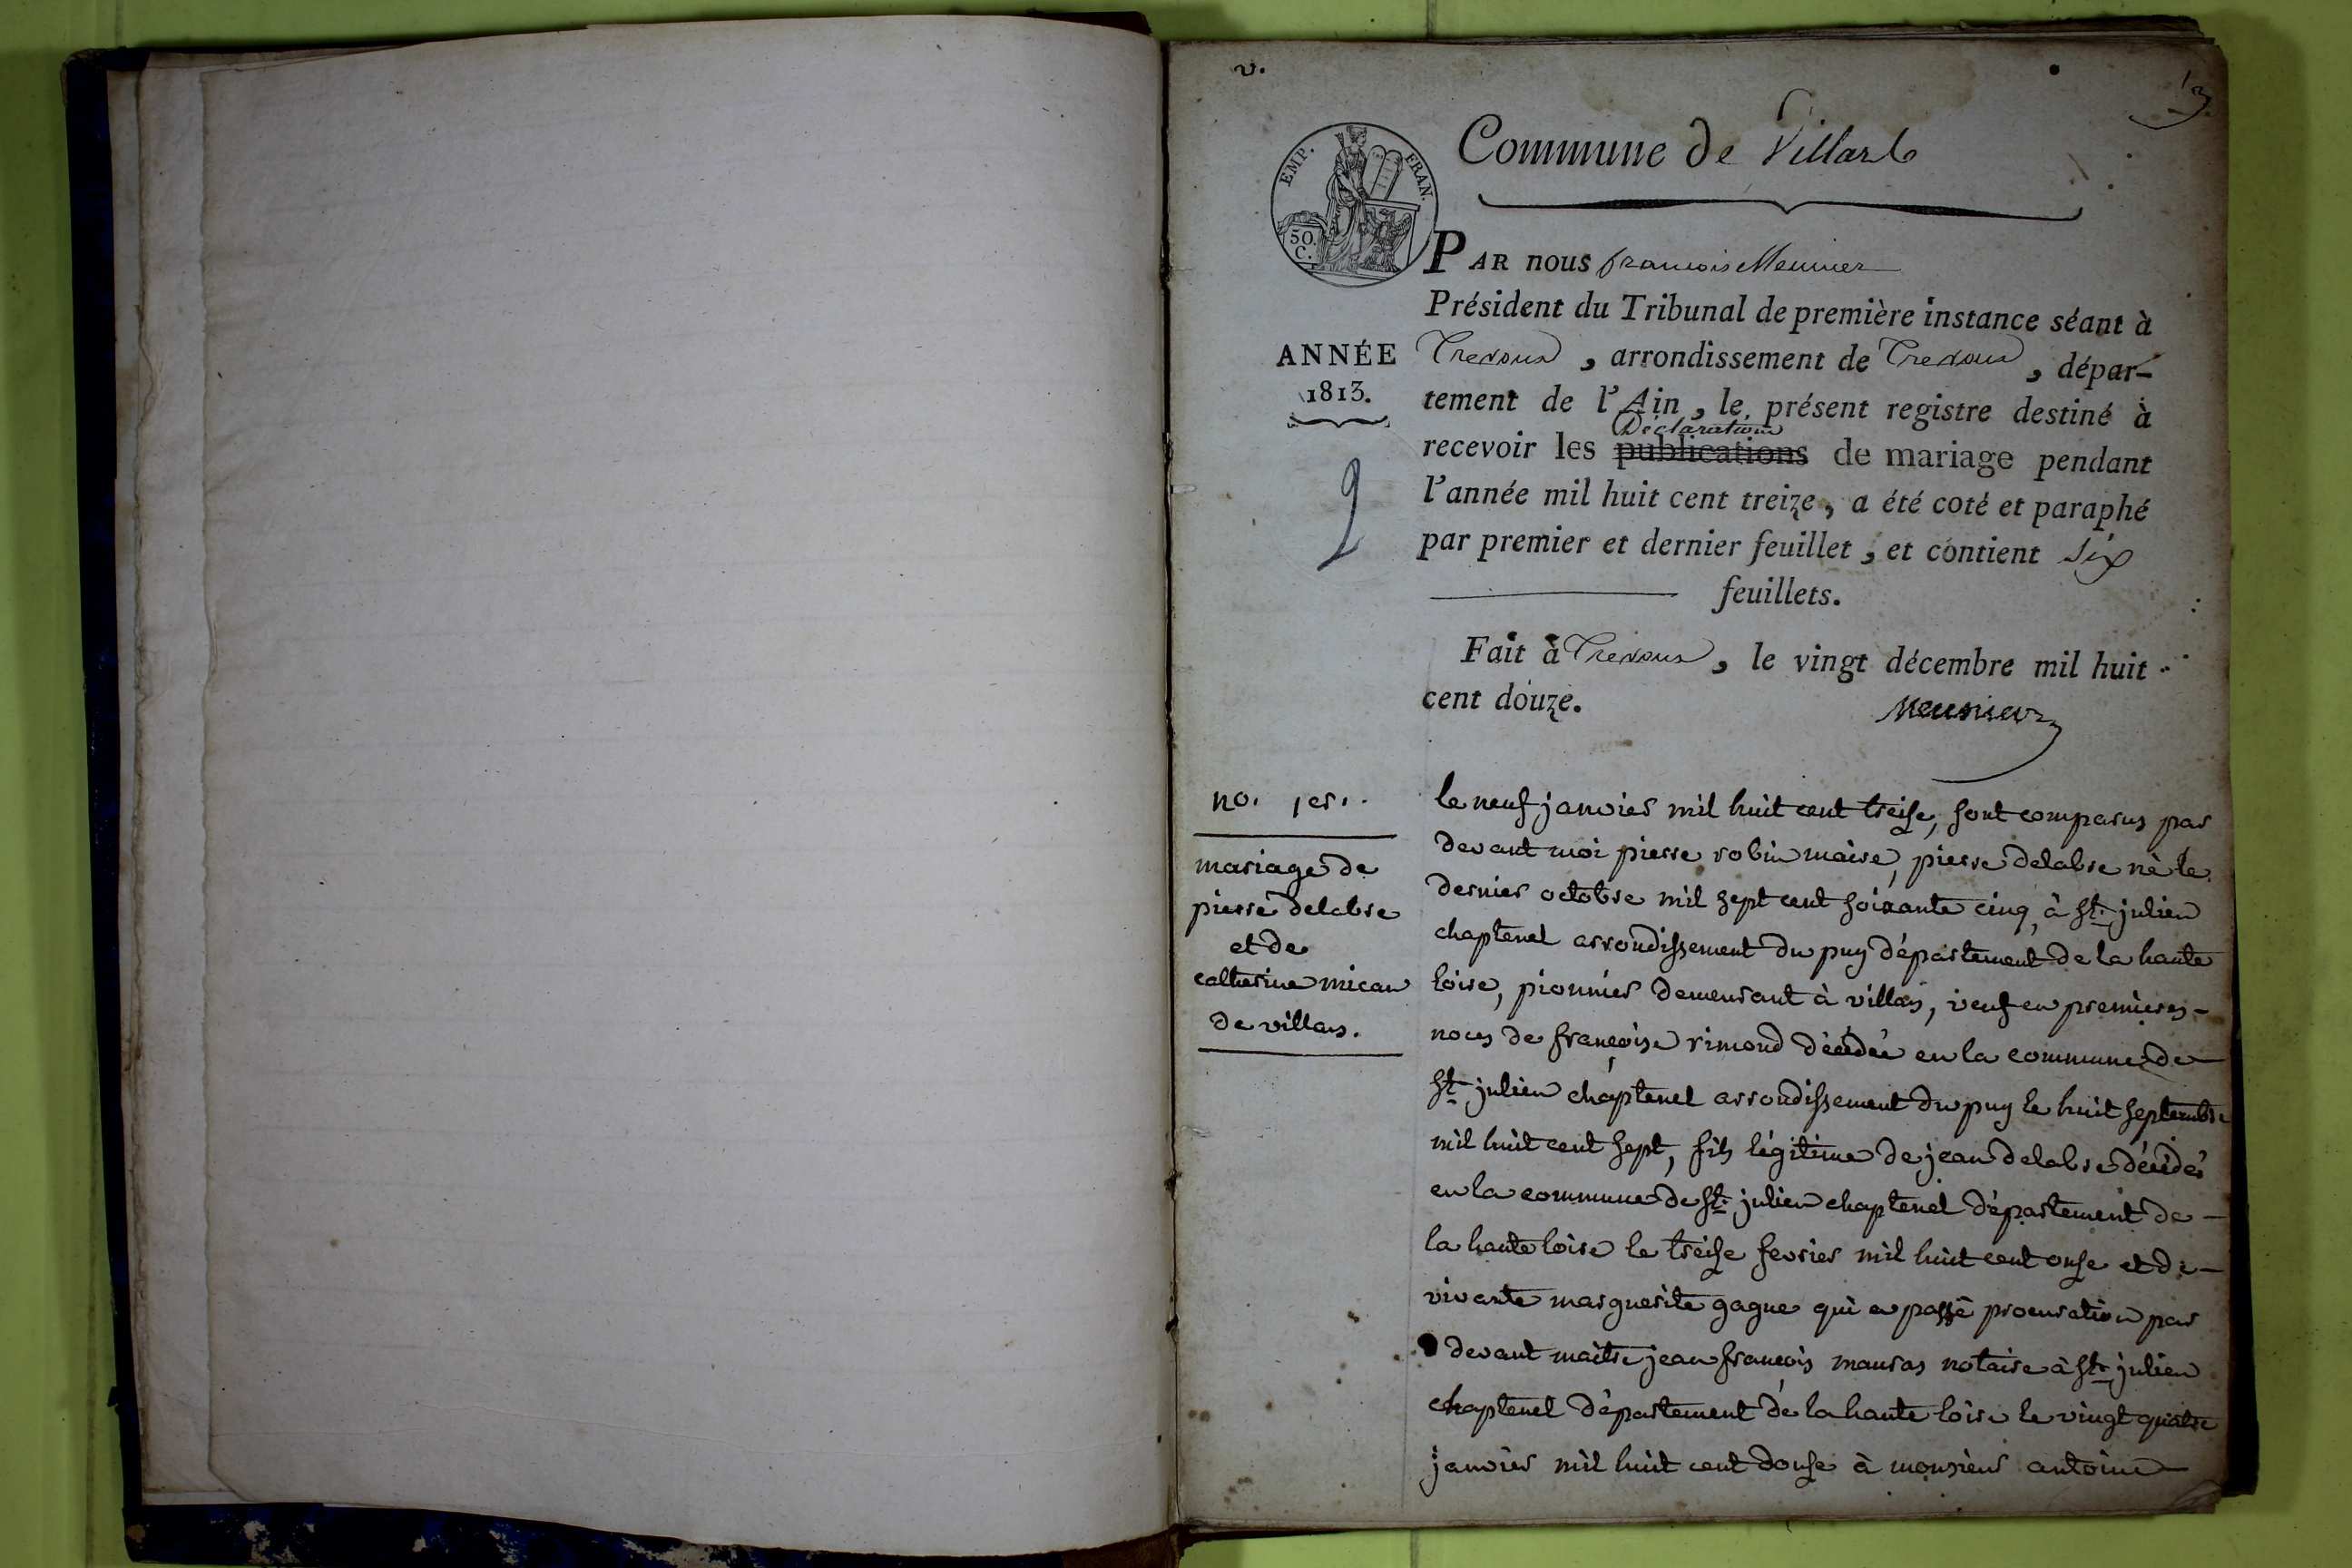 v.
13
Commune de Villars
EMP. FRAN.
50.
C.
PAR nous francois Meunier
Président du Tribunal de première instance séant à
ANNÉE
1813.
Trevoux, arrondissement de Trevoux, dépar-
tement de l'Ain, le présent registre destiné à
Déclarations
recevoir les publications de mariage pendant
l'année mil huit cent treize, a été coté et paraphé
par premier et dernier feuillet, et contient six
feuillets.
Fait à Trevoux, le vingt décembre mil huit
cent douze.
Meunier
no. 1er.
mariage de
pierre delabre
et de
catherine mican
de villars.
le neuf janvier mil huit cent treise, sont comparus par
devant moi pierre robin maire, pierre delabre nè le
dernier octobre mil sept cent soixante cinq, à st. julien
chaptenel arrondissement du puy département de la haute
loire, pionnier demeurant à villars, veuf en premieres -
noces de françoise rimond décédée en la commune de -
st. julien chaptenel arrondissement du puy le huit septembre
mil huit cent sept, fils légitime de jean delabre décédé
en la commune de st. julien chaptenel département de -
la haute loire le treise fevrier mil huit cent onse et de -
vivante marguerite gagne qui a passé procuration par
devant maitre jean françois mauras notaire à st. julien
chaptenel département de la haute loire le vingt quatre
janvier mil huit cent douse à monsieur antoine -